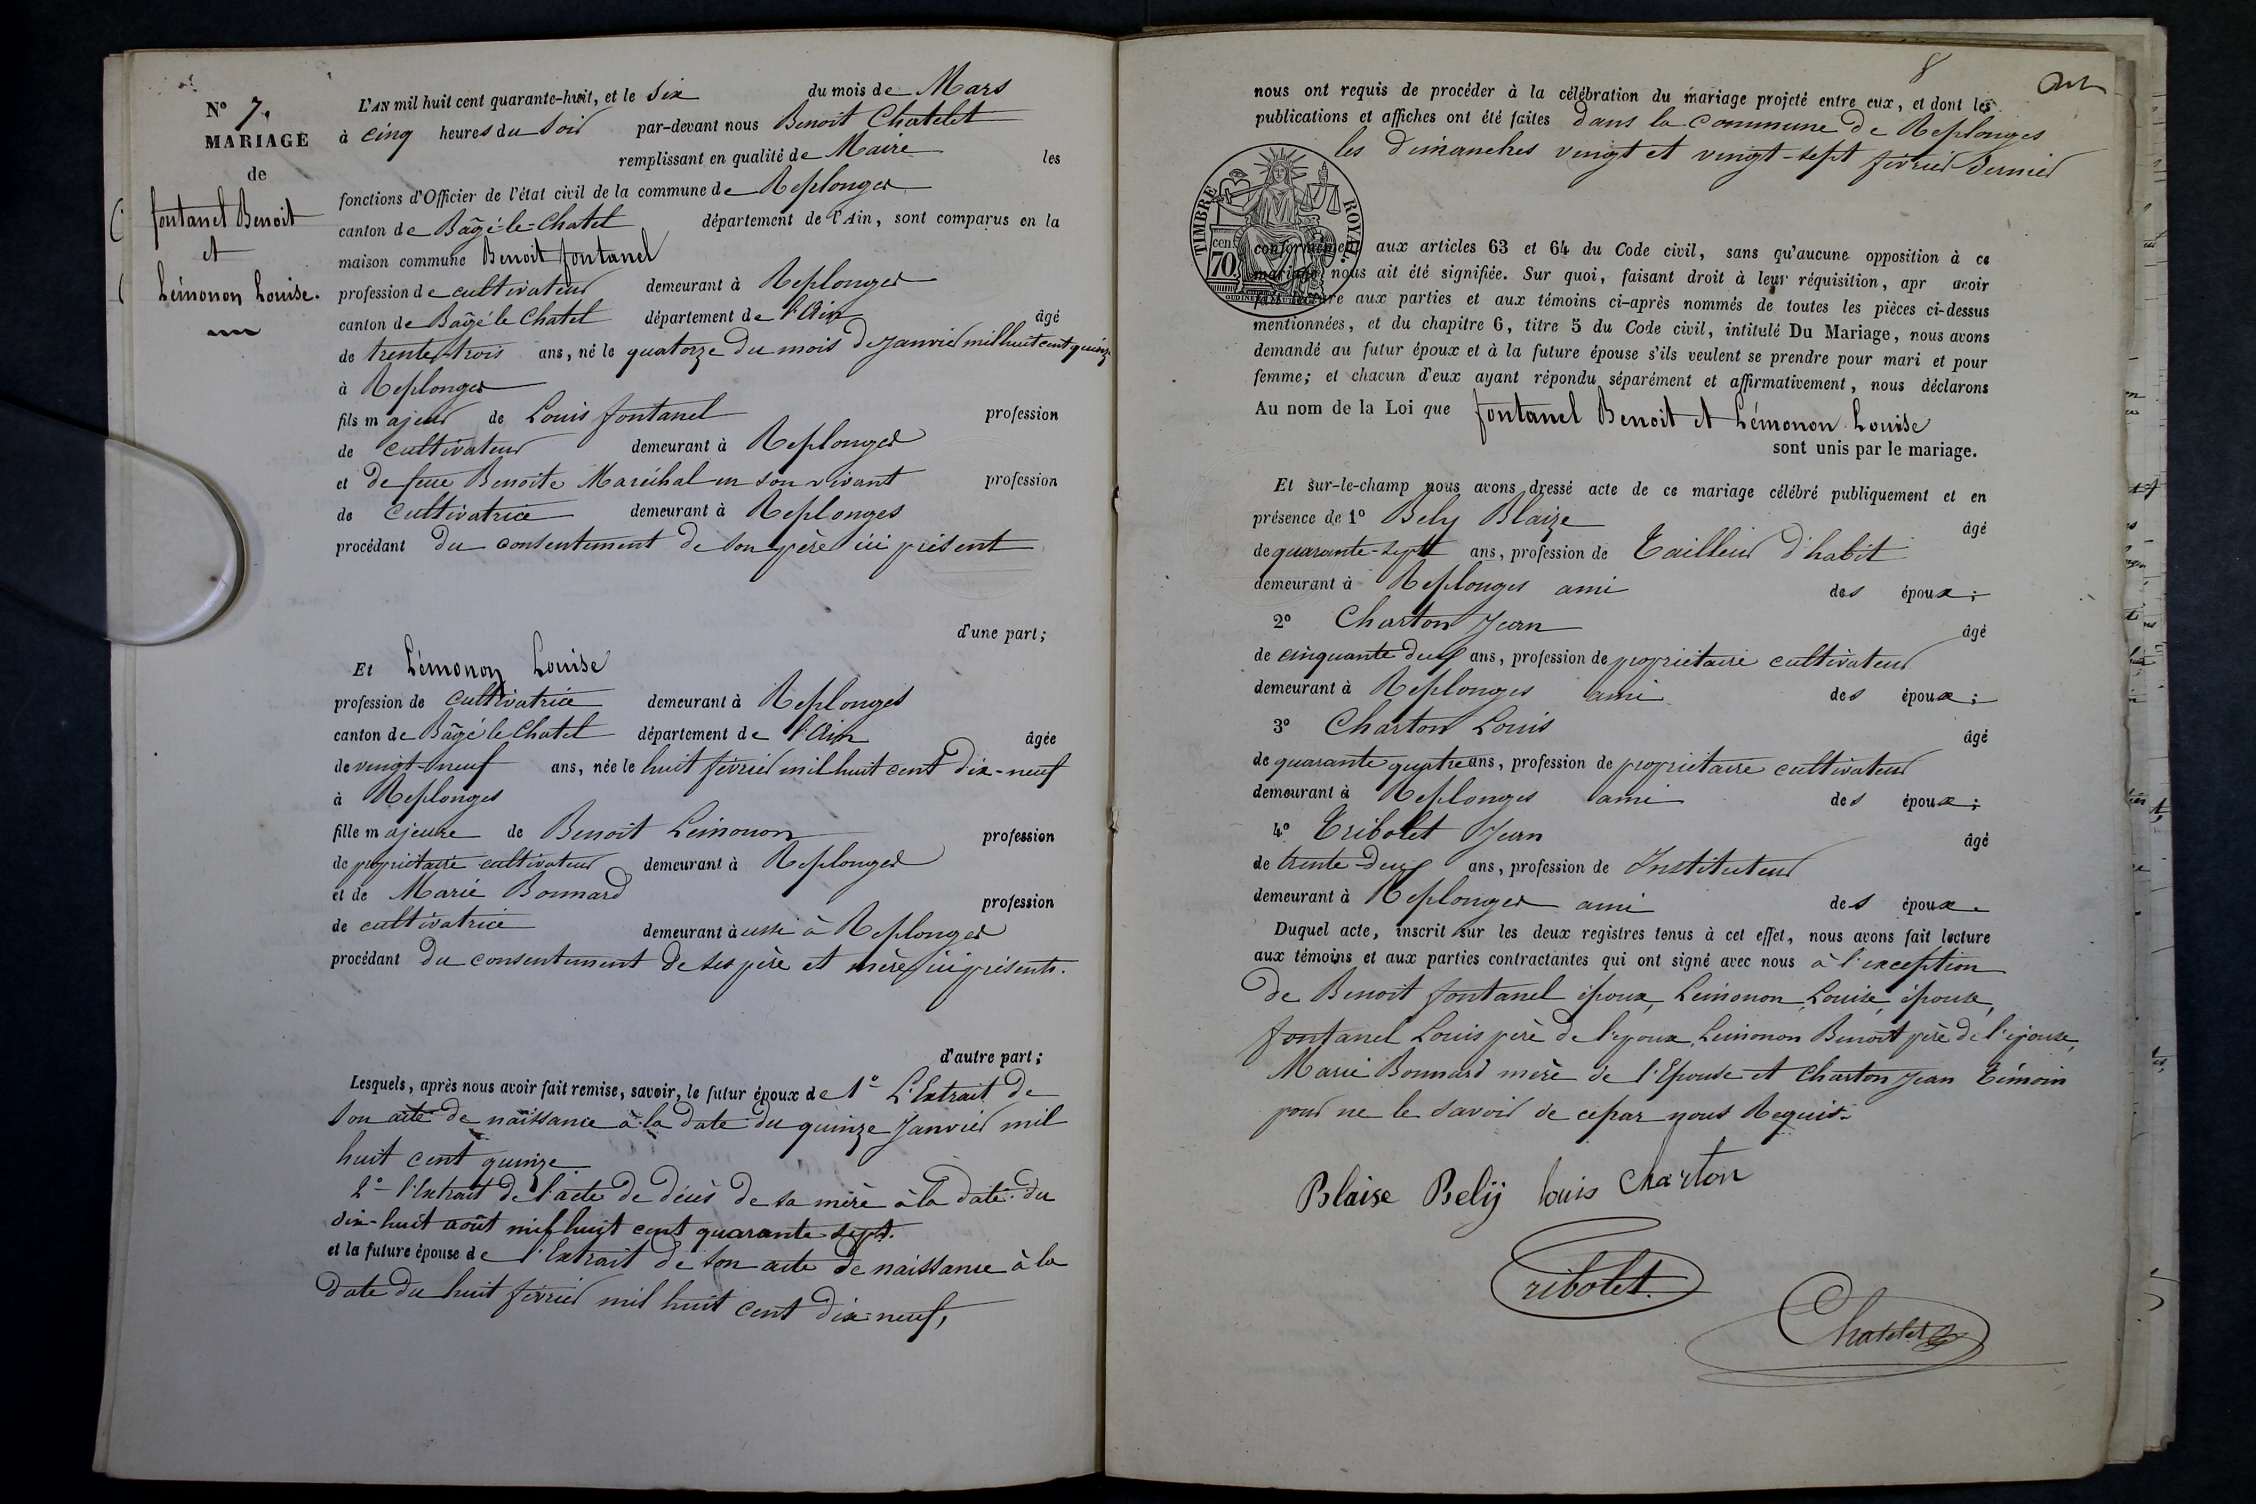 N° 7.
MARIAGE
de
fontanel Benoit
et
Lémonon Louise.
L'AN mil huit cent quarante-huit, et le Six du mois de Mars
à cinq heures du Soir par-devant nous Benoit Chatelet
remplissant en qualité de Maire les
fonctions d'Officier de l'état civil de la commune de Replonges
canton de Bâgé-le-Chatel département de l'Ain, sont comparus en la
maison commune Benoit fontanel
profession de cultivateur demeurant à Replonges
canton de Bâgé le Chatel département de l'Ain âgé
de trente-trois ans, né le quatorze du mois de janvier mil huit cent quinze
à Replonges
fils majeur de Louis fontanel profession
de cultivateur demeurant à Replonges
et de feue Benoite Maréchal en son vivant profession
de cultivatrice demeurant à Replonges
procédant du consentement de son père ici présent
d'une part;
Et Lémonon Louise
profession de cultivatrice demeurant à Replonges
canton de Bâgé le Chatel département de l'Ain âgée
de vingt-neuf ans, née le huit février mil huit cent dix-neuf
à Replonges
fille majeure de Benoit Lémonon profession
de propriétaire cultivateur demeurant à Replonges
et de Marie Bonnard profession
de cultivatrice demeurant aussi à Replonges
procédant du consentement de ses père et mère ici présents.
d'autre part;
Lesquels, après nous avoir fait remise, savoir, le futur époux de 1° L'Extrait de
son acte de naissance à la date du quinze Janvier mil
huit cent quinze
2° l'Extrait de l'acte de décès de sa mère à la date du
dix-huit août mil huit cent quarante-sept.
et la future épouse de l'Extrait de son acte de naissance à la
date du huit février mil huit cent dix-neuf,
8
nous ont requis de procéder à la célébration du mariage projeté entre eux, et dont les
publications et affiches ont été faites dans la Commune de Replonges
les dimanches vingt et vingt-sept février dernier
TIMBRE ROYAL.
cen.
70.
conformément aux articles 63 et 64 du Code civil, sans qu'aucune opposition à ce
mariage nous ait été signifiée. Sur quoi, faisant droit à leur réquisition, apr avoir
fait lecture aux parties et aux témoins ci-après nommés de toutes les pièces ci-dessus
mentionnées, et du chapitre 6, titre 5 du Code civil, intitulé Du Mariage, nous avons
demandé au futur époux et à la future épouse s'ils veulent se prendre pour mari et pour
femme; et chacun d'eux ayant répondu séparément et affirmativement, nous déclarons
Au nom de la Loi que fontanel Benoit et Lémonon Louise
sont unis par le mariage.
Et sur-le-champ nous avons dressé acte de ce mariage célébré publiquement et en
présence de 1° Bely Blaize âgé
de quarante-sept ans, profession de Tailleur d'habit
demeurant à Replonges ami des époux;
2° Charton Jean âgé
de cinquante deux ans, profession de propriétaire cultivateur
demeurant à Replonges ami des époux;
3° Charton Louis âgé
de quarante quatre ans, profession de propriétaire cultivateur
demeurant à Replonges ami des époux;
4° Tribolet Jean âgé
de trente-deux ans, profession de Instituteur
demeurant à Replonges ami des époux.
Duquel acte, inscrit sur les deux registres tenus à cet effet, nous avons fait lecture
aux témoins et aux parties contractantes qui ont signé avec nous à l'exception
de Benoit fontanel époux, Lémonon Louise, épouse,
fontanel Louis père de l'époux, Lémonon Benoit père de l'épouse,
Marie Bonnard mère de l'Epouse et Charton Jean Témoin
pour ne le savoir de ce par nous Requis.
Blaise Belij louis Charton
Tribolet.
Chatelet